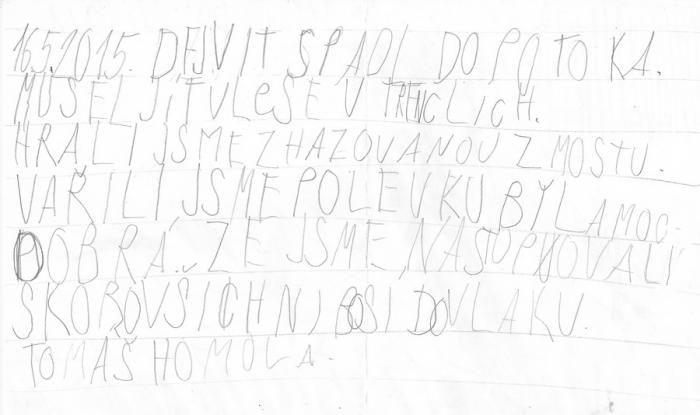 16.5.2015. DEJVIT SPADL DO POTOKA.
MUSEL JÍT V LESE V TRENCLICH.
HRALI JSME ZHAZOVANOU Z MOSTU.
VAŘILI JSME POLEVKU BYLA MOC
DOBRÁ. ZE JSME NASTOPKOVALI
SKOROVŠICHNI BOSI DOVLAKU.
TOMAŠ HOMOLA.